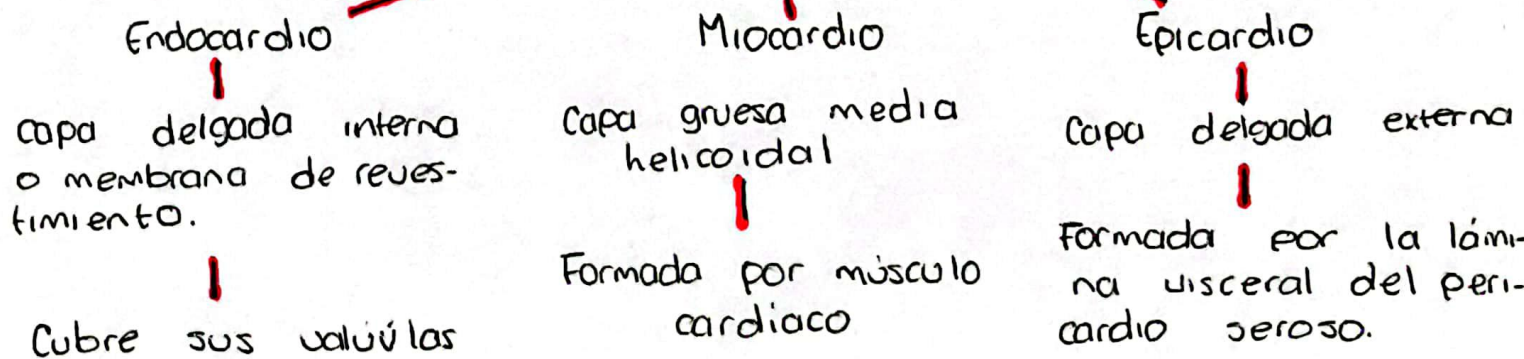 Endocardio
capa delgada interna
o membrana de reves-
timiento.
Cubre sus valúvlas
Miocardio
Capa gruesa media
helicoidal
Formada por músculo
cardiaco
Epicardio
Capa delgada externa
Formada por la lámi-
na visceral del peri-
cardio seroso.